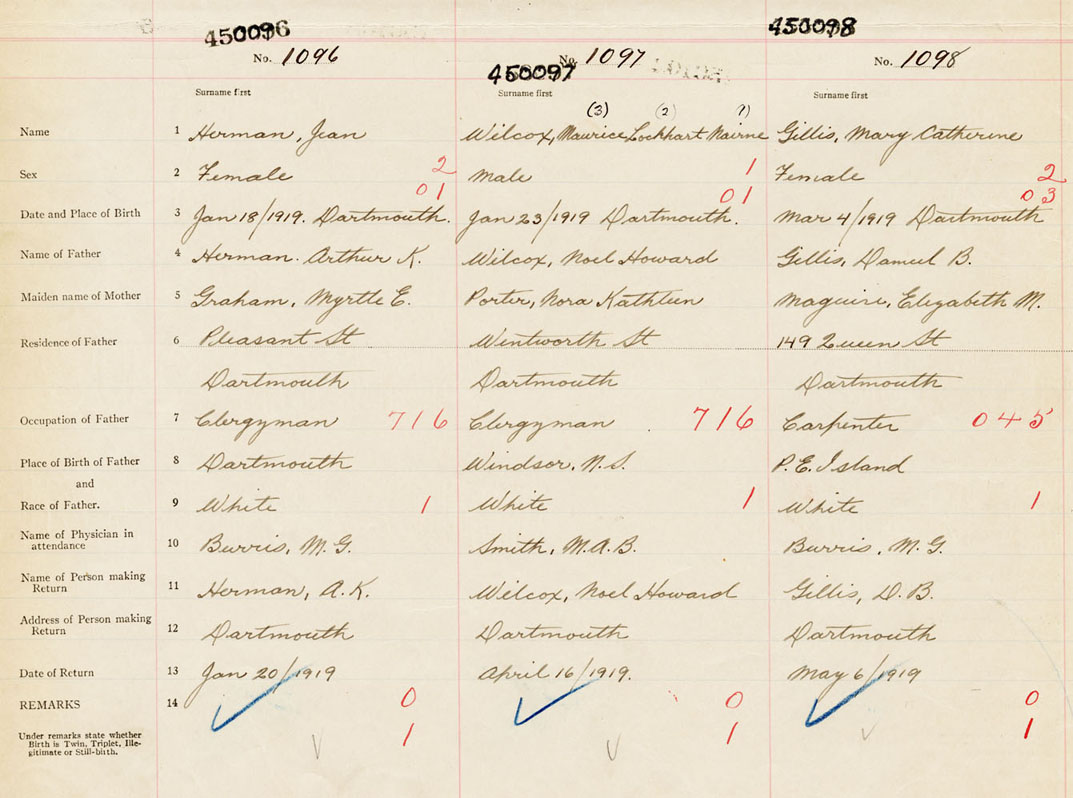 450096 450097 450098
No. 1096 No. 1097 No. 1098
Surname first Surname first Surname first
(3) (2) (1)
Name 1 Herman, Jean Wilcox, Maurice Lockhart Nairne Gillis, Mary Catherine
Sex 2 Female 2 Male 1 Female 2
01 01 03
Date and Place of Birth 3 Jan 18/1919. Dartmouth. Jan 23/1919 Dartmouth. Mar 4/1919 Dartmouth
Name of Father 4 Herman. Arthur K. Wilcox, Noel Howard Gillis, Daniel B.
Maiden name of Mother 5 Graham, Myrtle E. Porter, Nora Kathleen Maguire, Elizabeth M.
Residence of Father 6 Pleasant St Wentworth St 149 Queen St
Dartmouth Dartmouth Dartmouth
Occupation of Father 7 Clergyman 716 Clergyman 716 Carpenter 045
Place of Birth of Father 8 Dartmouth Windsor, N.S. P.E. Island
and
Race of Father. 9 White 1 White 1 White 1
Name of Physician in
attendance 10 Burris, M.G. Smith, M.A.B. Burris, M.G.
Name of Person making
Return 11 Herman, A.K. Wilcox, Noel Howard Gillis, D.B.
Address of Person making
Return 12 Dartmouth Dartmouth Dartmouth
Date of Return 13 Jan 20/1919 April 16/1919. May 6/1919
REMARKS 14 0 0 0
Under remarks state whether
Birth is Twin, Triplet, Ille-
gitimate or Still-birth. 1 1 1